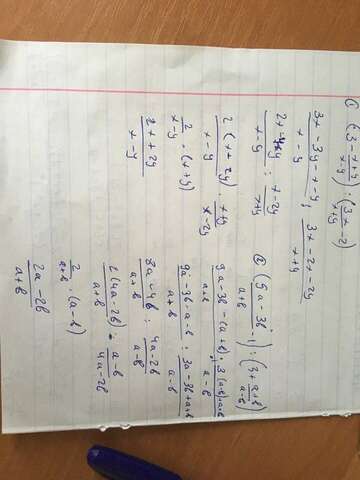 ① (3 - \frac{x+y}{x-y}) : (\frac{3x}{x+y} - 2)
\frac{3x-3y-x-y}{x-y} : \frac{3x-2x-2y}{x+y}
\frac{2x-4y}{x-y} : \frac{x-2y}{x+y}
\frac{2(x+2y)}{x-y} · \frac{x+y}{x-2y}
\frac{2}{x-y} · (x+y)
\frac{2x+2y}{x-y}
② (\frac{9a-3b}{a+b} - 1) : (3 + \frac{a+b}{a-b})
\frac{9a-3b-(a+b)}{a+b} : \frac{3(a-b)+a+b}{a-b}
\frac{9a-3b-a-b}{a+b} : \frac{3a-3b+a+b}{a-b}
\frac{8a-4b}{a+b} : \frac{4a-2b}{a-b}
\frac{2(4a-2b)}{a+b} · \frac{a-b}{4a-2b}
\frac{2}{a+b} · (a-b)
\frac{2a-2b}{a+b}